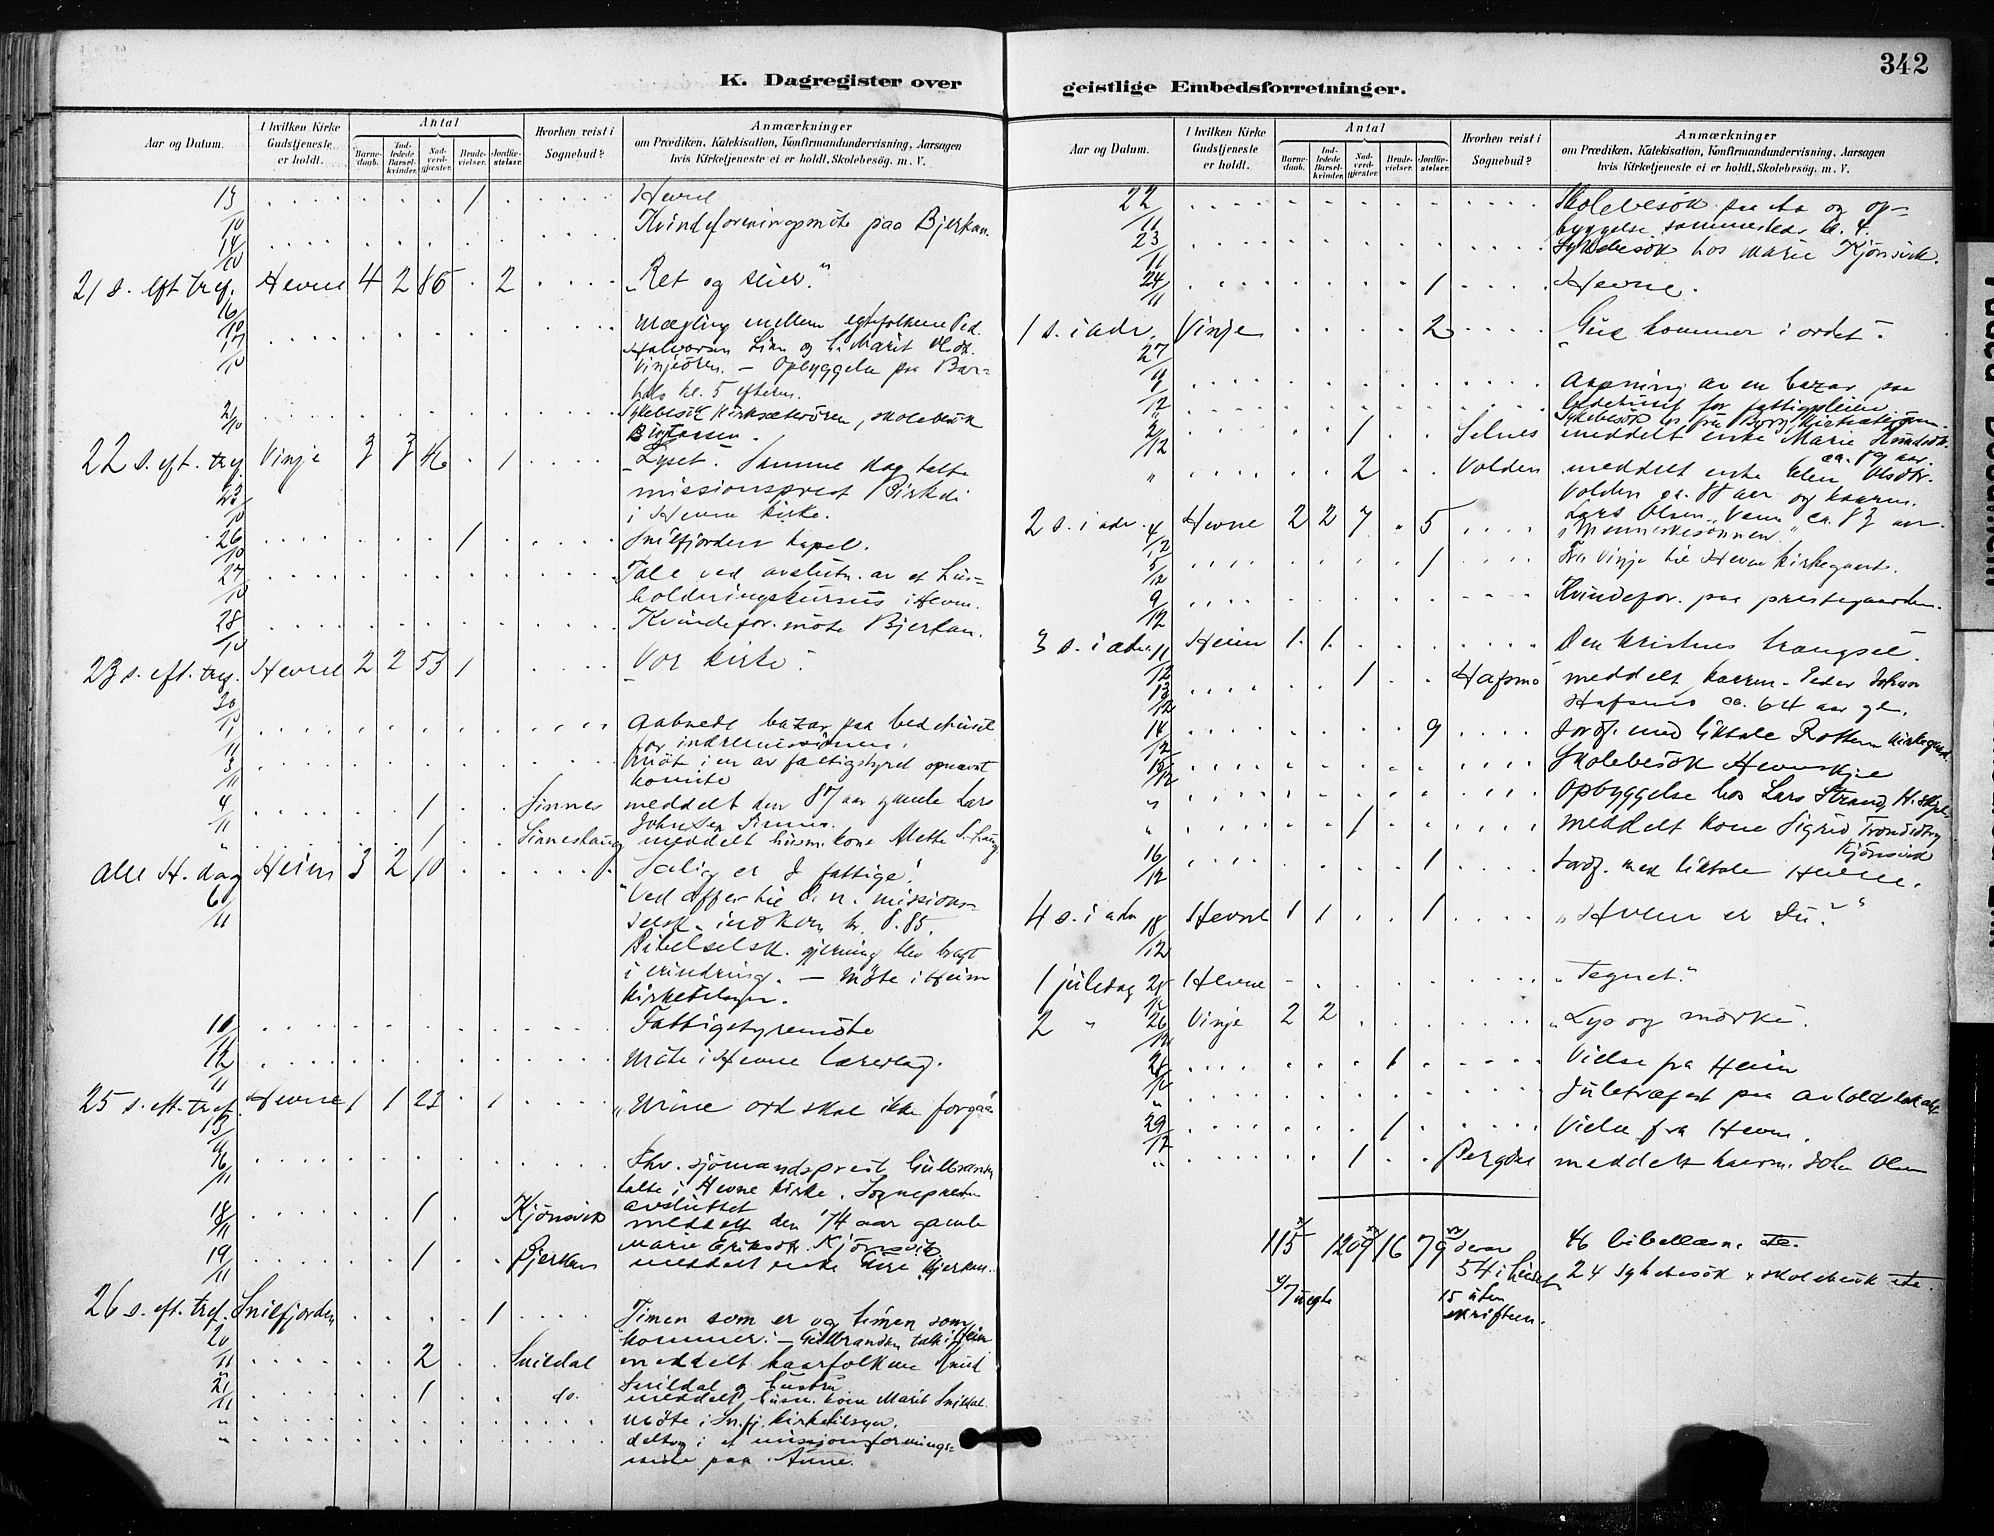 342
K. Dagregister over
geistlige Embedsforretninger.
Aar og Datum.
I hvilken Kirke Gudstjeneste er holdt.
Antal
Barnedaab.
Indledede Barselkvinder.
Nadverdgjæster.
Brudevielser.
Jordfæstelser.
Hvorhen reist i Sognebud?
Anmærkninger
om Prædiken, Katekisation, Konfirmandundervisning, Aarsagen
hvis Kirketjeneste ei er holdt, Skolebesøg. m. V.
13/10 1 Hevne
14/10 Kvindeforeningsmöte paa Bjerkan.
21 s. eft. tref. 16/10 Hevne 4 2 86 2 "Ret og seier."
17/10 Mægling mellem egtefolkene Ped.
Halvorsen og h. Marit Olsdt.
Vinjeören. - Opbyggelse paa
kl. 5 efterm.
21/10 Sykebesök Kirksæterören, skolebesök
22 s. eft. tref. 23/10 Vinje 3 3 46 1 Lyset. Samme dag talte
missionsprest
i Hevne kirke.
26/10 1 Snilfjordens kapel.
27/10 Tale ved avslutn. av et hus-
holdningskursus i Hevne.
28/10 Kvindefor. möte Bjerkan.
23 s. eft. tref. 30/10 Hevne 2 2 53 1 "Vor kirke".
1/11 Aabnede bazar paa bedehuset
for indremissionen.
3/11 Möt i en av fattigstyret opnævnt
komite
4/11 1 Sinnes meddelt den 87 aar gamle Lars
Johnsen Sinnes.
1 Sinneshaug meddelt husm. kone Alette S.haug
Alle H. dag 6/11 Heim 3 2 10 Salig er I fattige!
Ved offer til d. n. missions-
selsk. indkom kr. 8.85.
Bibelselsk. gjerning blev bragt
i erindring. - Möte i Heim
kirketilsyn.
10/11 Fattigstyremöte
12/11 Möte i Hevne lærerlag.
25 s. eft. tref. 13/11 Hevne 1 1 23 1 "Mine ord skal ikke forgaa"
16/11 Shv. sjömandsprest Gulbrands
talte i Hevne kirke. Sognepresten
avsluttet
18/11 1 Kjönsvik meddelt den 74 aar gamle
Marie Eriksdt. Kjönsvik
19/11 1 Bjerkan meddelt enke Bjerkan.
26 s. eft. tref. 20/11 Snilfjorden 1 Timen som er og timen som
kommer". - Gulbrandsen talte i Heim
2 Snildal meddelt kaarfolkene Knud
Snildal og hustru
21/11 1 do. meddelt husm. kone Marit Snildal.
" Möte i Snfj. kirketilsyn.
" deltog i et missionsforenings-
möte paa
Aar og Datum.
I hvilken Kirke Gudstjeneste er holdt.
Antal
Barnedaab.
Indledede Barselkvinder.
Nadverdgjæster.
Brudevielser.
Jordfæstelser.
Hvorhen reist i Sognebud?
Anmærkninger
om Prædiken, Katekisation, Konfirmandundervisning, Aarsagen
hvis Kirketjeneste ei er holdt, Skolebesøg. m. V.
22/11 Skolebesök paa Aa og op-
byggelse sammesteds kl. 4.
23/11 Sykebesök hos Marie Kjönsvik.
24/11 1 Hevne.
1 s. i adv. 27/11 Vinje 2 "Gud kommer i ordet".
1/12 Aapning av en bazar paa
bedehuset for fattigpleien
" Sykebesök hos fru Borg Kirksæterören.
2/12 1 Selnes meddelt enke Marie
ca. 89 aar.
" 2 Volden meddelt enke Elen Olsdtr.
Volden ca. 88 aar og kaarm.
Lars Olsen ca. 83 aar.
2 s. i adv. 4/12 Hevne 2 2 7 5 "Menneskesönnen"
5/12 1 Fra Vinje til Hevne kirkegaard.
9/12 Kvindefor. paa prestegaarden.
3 s. i adv. 11/12 Heim 1 1 Den kristnes trængsel.
13/12 1 Hafsmo meddelt kaarm. Peder Johnsen
Hafsmo ca. 64 aar gl.
14/12 9 Jordf. med liktale Rottem kirkegaard.
15/12 Skolebesök Hevneskjæl
" Opbyggelse hos Lars Strand, H.skjel.
" 1 meddelt kone Sigrid Trondsdtr
Kjönsvik
16/12 1 Jordf. med liktale Hevne.
4 s. i adv. 18/12 Hevne 1 1 1 "Hvem er du?"
1 juledag 25/12 Hevne "Tegnet".
2 " 26/12 Vinje 2 2 "Lys og mörke".
28/12 1 Vielse fra Heim
" Juletræfest paa avholdslokalet
29/12 1 Vielse fra Hevne.
" 1 Bergdal meddelt kaarm. John Olsen
115 1209 16 79 derav 46 bibellæsn.
54 i huset 24 sykebesök + skolebesök
7 uegte 15 uten
skriften.